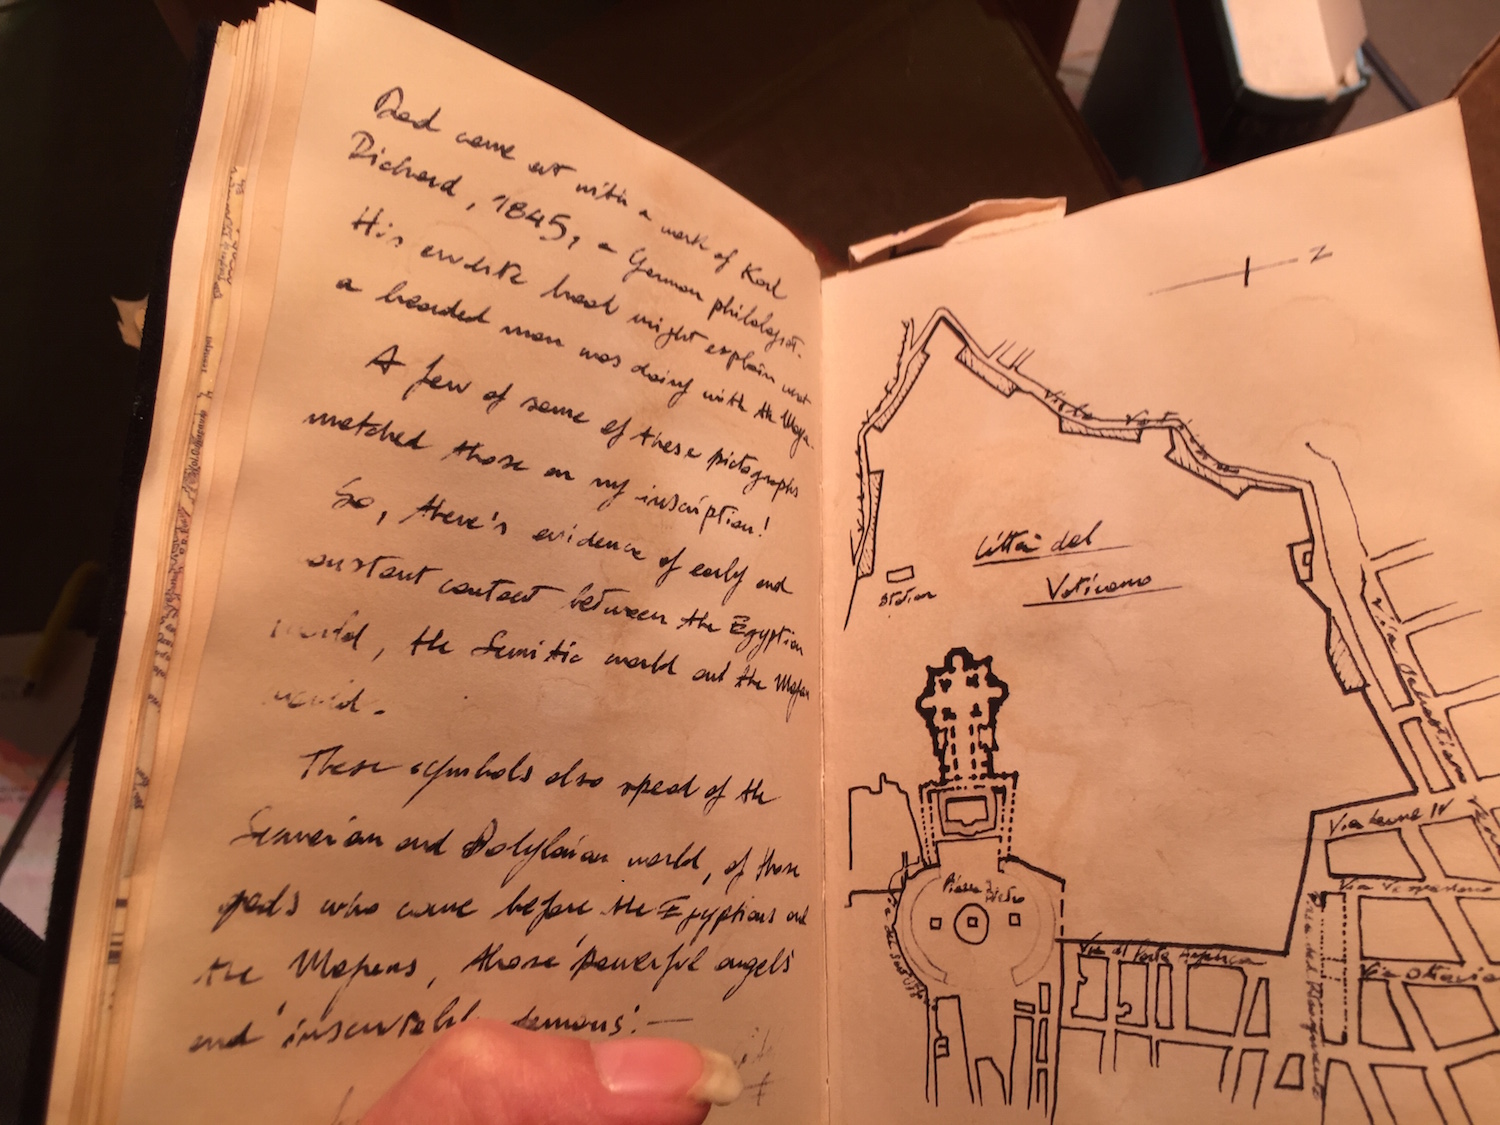 Dad came out with a work of Karl
Richard, 1845, a German philologist.
His erudite head might explain what
a bearded man was doing with the Maya.
A few of some of these pictographs
matched those on my inscription!
So, there's evidence of early and
constant contact between the Egyptian
world, the Semitic world and the Mayan
world.
These symbols also speak of the
Sumerian and Babylonian world, of those
gods who came before the Egyptians and
the Mayans, those 'powerful angels'
and 'inscrutable demons'. —
N
Viale Vati
Città del
Vaticano
Station
Via Sebastiano
Via Leone IV
Via Vespasiano
Piazza Pietro
Via di Porta Angelica
Via Ottavia
Piazza del Risorgimento